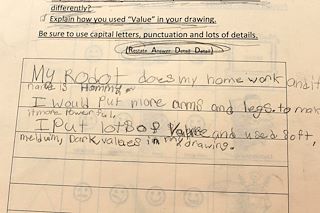 differently?
Explain how you used "Value" in your drawing.
Be sure to use capital letters, punctuation and lots of details.
(Restate Answer Detail Detail)
My Robot does my home work and it
name is
I would Put more arms and legs. to mak
it more Power ful.
I Put lots of Value and used soft,
meidum, Dark values in my drawing.